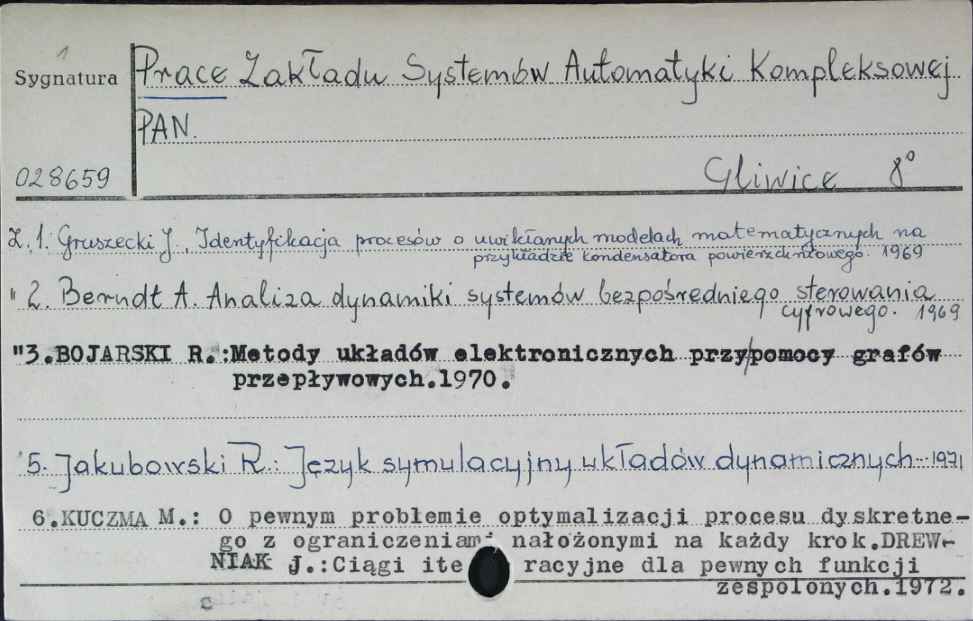 1
Sygnatura
Prace Zakładu Systemów Automatyki Kompleksowej
PAN.
028659
Gliwice 8°
Z. 1. Gruszecki J., Identyfikacja procesów o uwikłanych modelach matematycznych na
przykładzie kondensatora powierzchniowego. 1969
" 2. Berndt A. Analiza dynamiki systemów bezpośredniego sterowania
cyfrowego. 1969
"3.BOJARSKI R.:Metody układów elektronicznych przy/pomocy grafów
przepływowych.1970.
"5. Jakubowski R.: Język symulacyjny układów dynamicznych 1971
6.KUCZMA M.: O pewnym problemie optymalizacji procesu dyskretne-
go z ograniczeniami nałożonymi na każdy krok.DREW-
NIAK J.:Ciągi ite racyjne dla pewnych funkcji
zespolonych.1972.